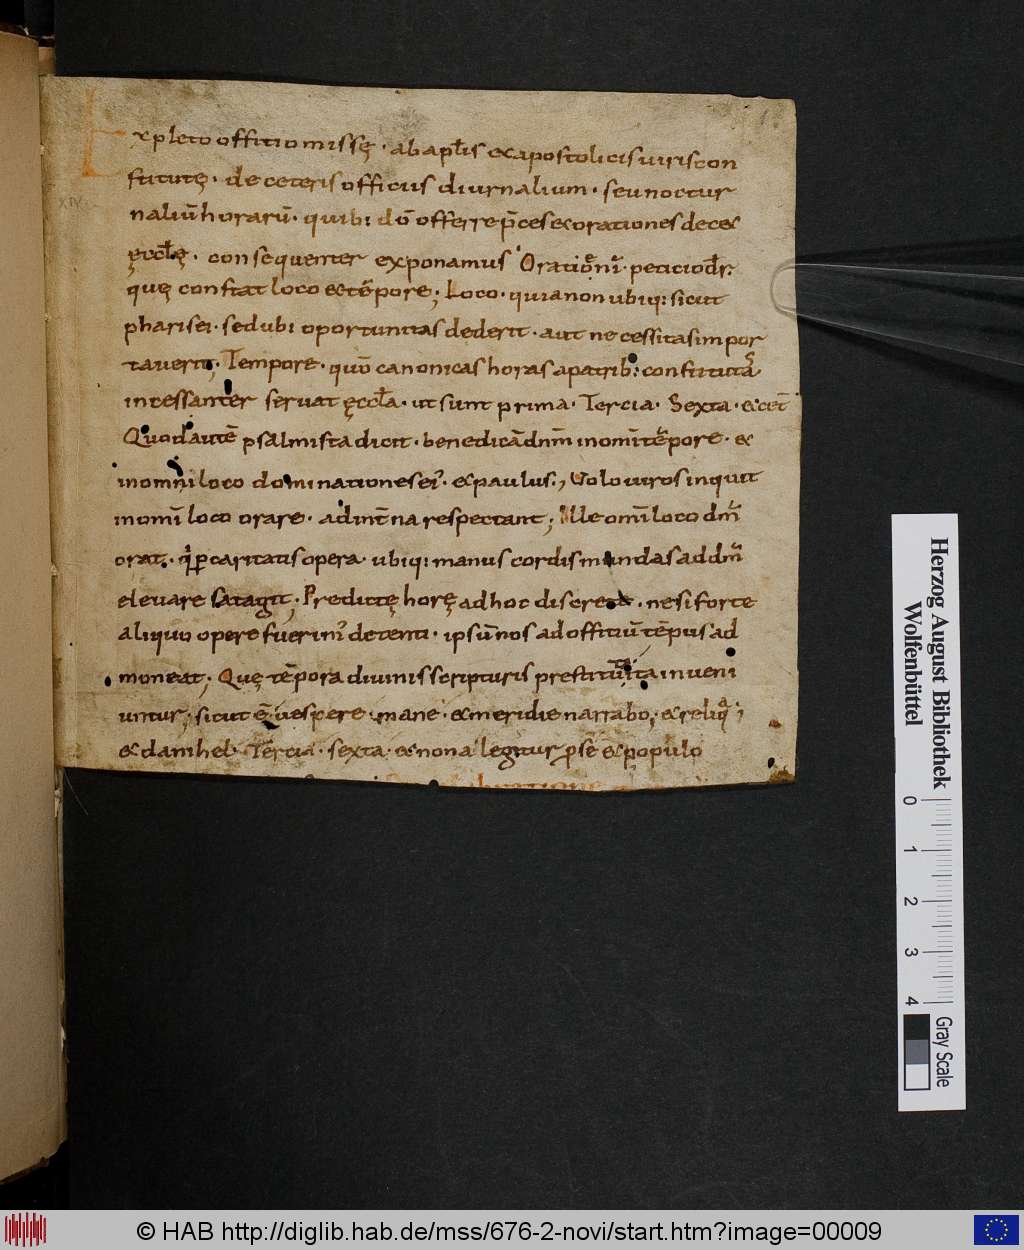 Expleto offitio missę · ab apłis et apostolicis viris con
stitutę · de ceteris officiis diurnalium · seu noctur
naliū horarū · quib; dō offerre p̄ces et orationes decet
ęccłę · consequenter exponamus Oratio peticio
quę constat loco et tēpore; Loco · quia non ubiq; sicut
pharisei · sed ubi oportunitas dederit · aut necessitas impor
taverit; Tempore · quō canonicas horas a patrib; constituta
incessanter servat ęccła · ut sunt prima · Tercia · Sexta · et cet̄
Quod autē psalmista dicit · benedicā dnm̄ in omī tēpore · et
in omni loco dominationes ei · et paulus; Volo viros inquit
in omī loco orare · ad int̄na respectant; Ille omī loco dm̄
orat · q̇ ꝑ caritatis opera · ubiq; manus cordis mundas ad dm̄
elevare satagit; Predictę horę ad hoc discretę · ne si forte
aliquo opere fuerim detenti · ipsū nos ad offitiū tēpus ad
moneat; Quę tēpora divinis scripturis prestituta ita inveni
untur; sicut ē vespere mane · et meridie narrabo; et reliq;
et danihel · Tercia · sexta · et nona legitur ꝓ se et ꝓ populo
Herzog August Bibliothek
Wolfenbüttel
0 1 2 3 4
Gray Scale
© HAB http://diglib.hab.de/mss/676-2-novi/start.htm?image=00009